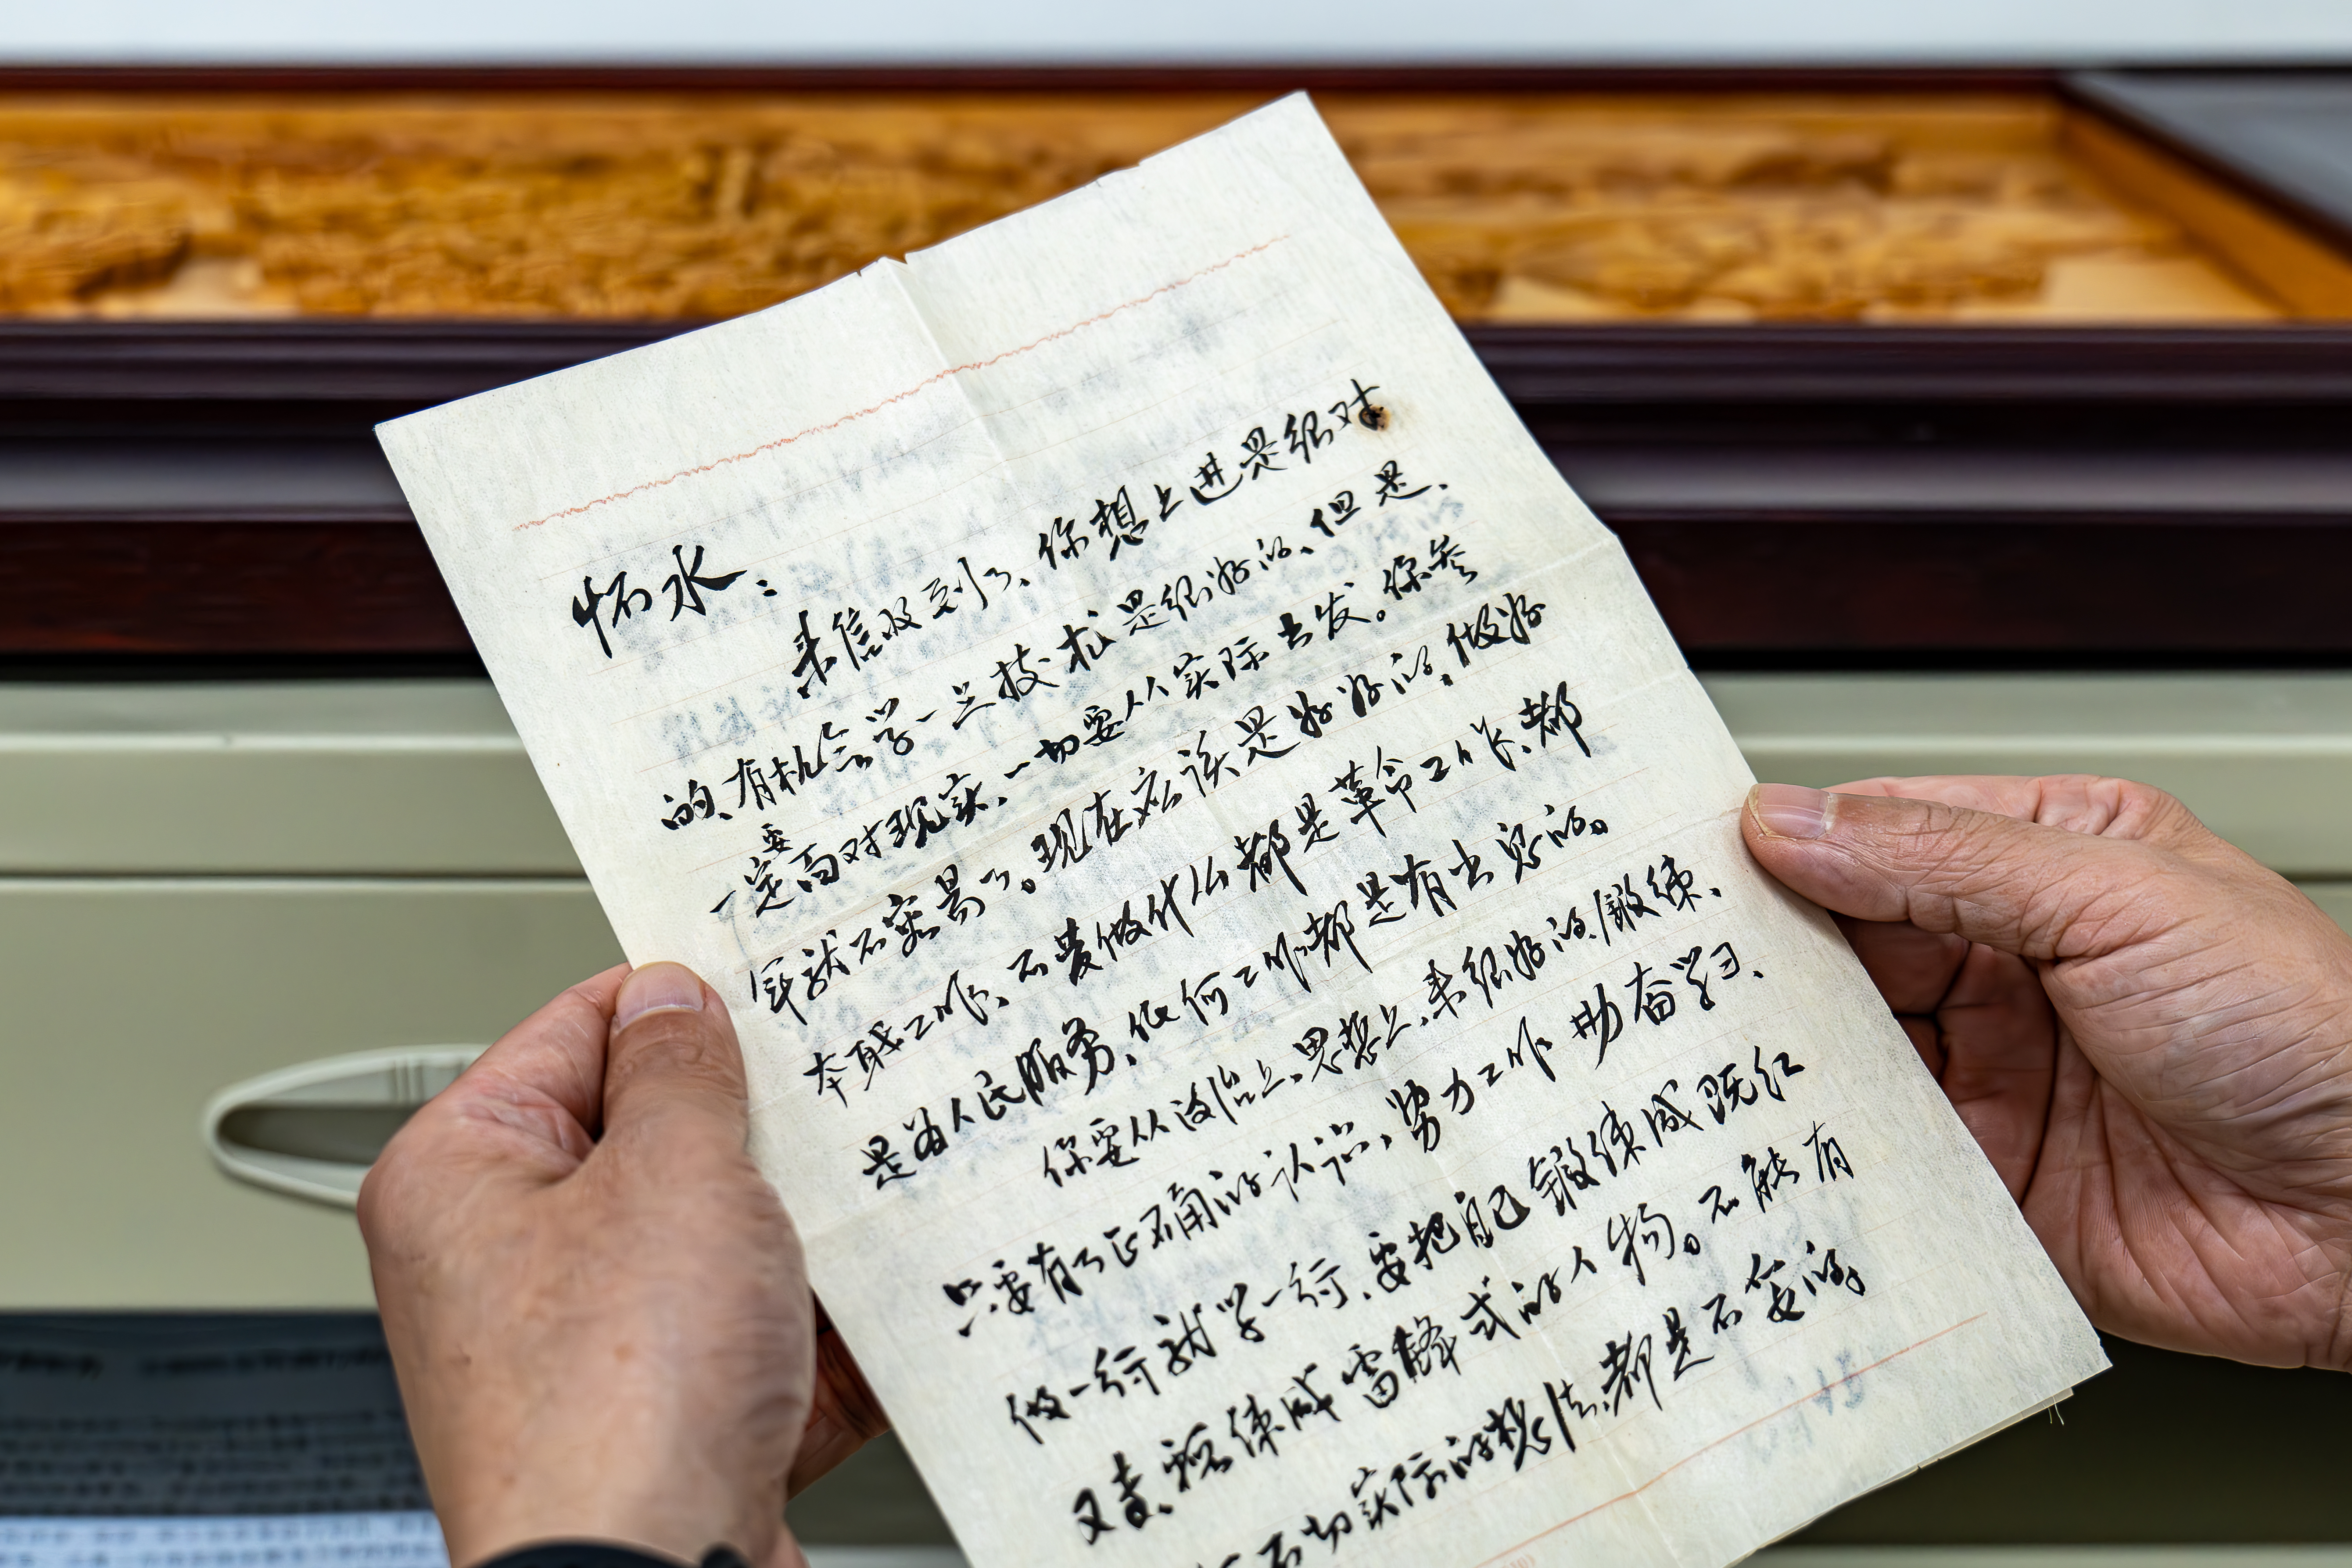 怀水：
来信收到了、你想上进是很对
的、有机会学一点技术是很好的、但是、
一定要面对现实、一切要从实际出发。你参
军就不容易了。现在应该是好好的，做好
本职工作、不要做什么都是革命工作、都
是为人民服务、任何工作都是有出息的。
你要从政治上、思想上、来很好的锻练、
只要有了正确的认识，努力工作 勤奋学习、
做一行就学一行、要把自己锻练成既红
又专、锻练成雷锋式的人物。不能有
不切实际的想法、都是不妥的